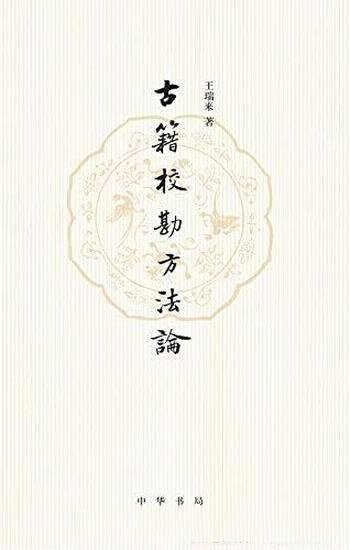 古籍校勘方法論
王瑞来 著
中华书局